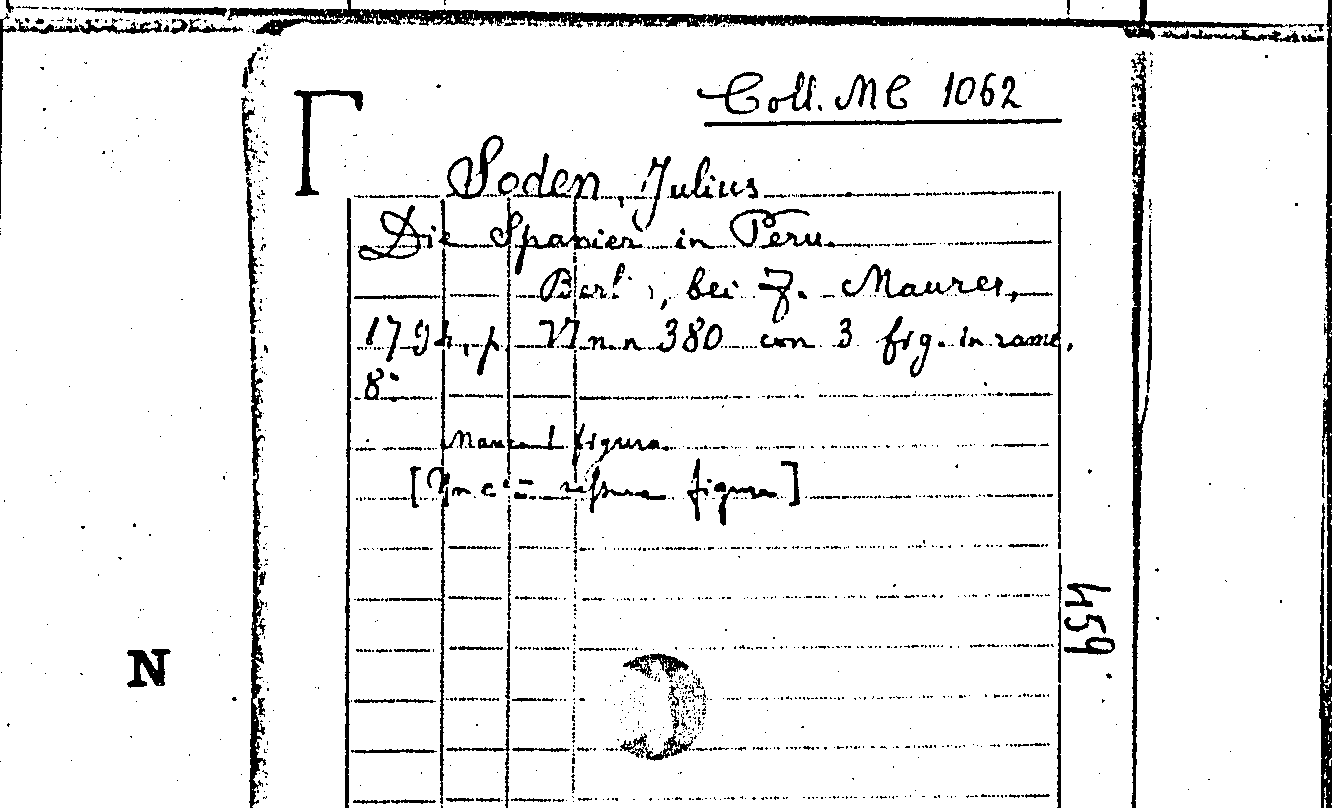 Coll. MC 1062
Soden, Julius
Die Spanier in Peru.
bei F. Maurer,
1794, p. VI n.n 380 con 3 fig. in rame.
8°
Manca 1 figura
figura]
459
N